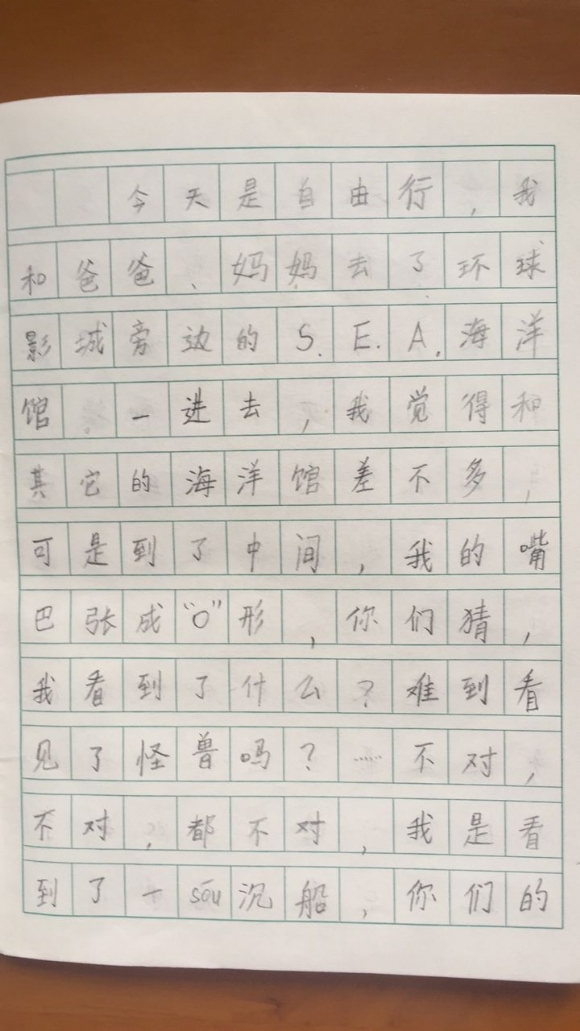 今天是自由行，我
和爸爸、妈妈去了环球
影城旁边的S.E.A.海洋
馆。一进去，我觉得和
其它的海洋馆差不多，
可是到了中间，我的嘴
巴张成“O”形，你们猜，
我看到了什么？难到看
见了怪兽吗？……不对，
不对，都不对，我是看
到了一sōu沉船，你们的